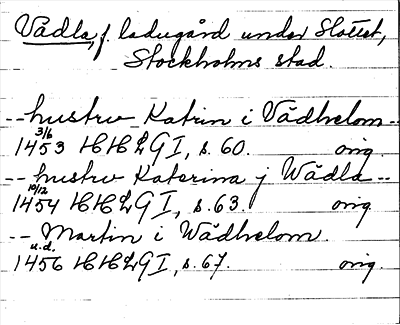 Vädla, f. ladugård under Slottet,
Stockholms stad.
-- hustrv Katrin i Vädhelom --
1453 3/6 HHLG I, s. 60. orig.
-- hustrv Katerina j Wädla --
1454 10/12 HHLG I, s. 63. orig.
-- Martin i Wädhelom.
1456 u.d. HHLG I, s. 67. orig.